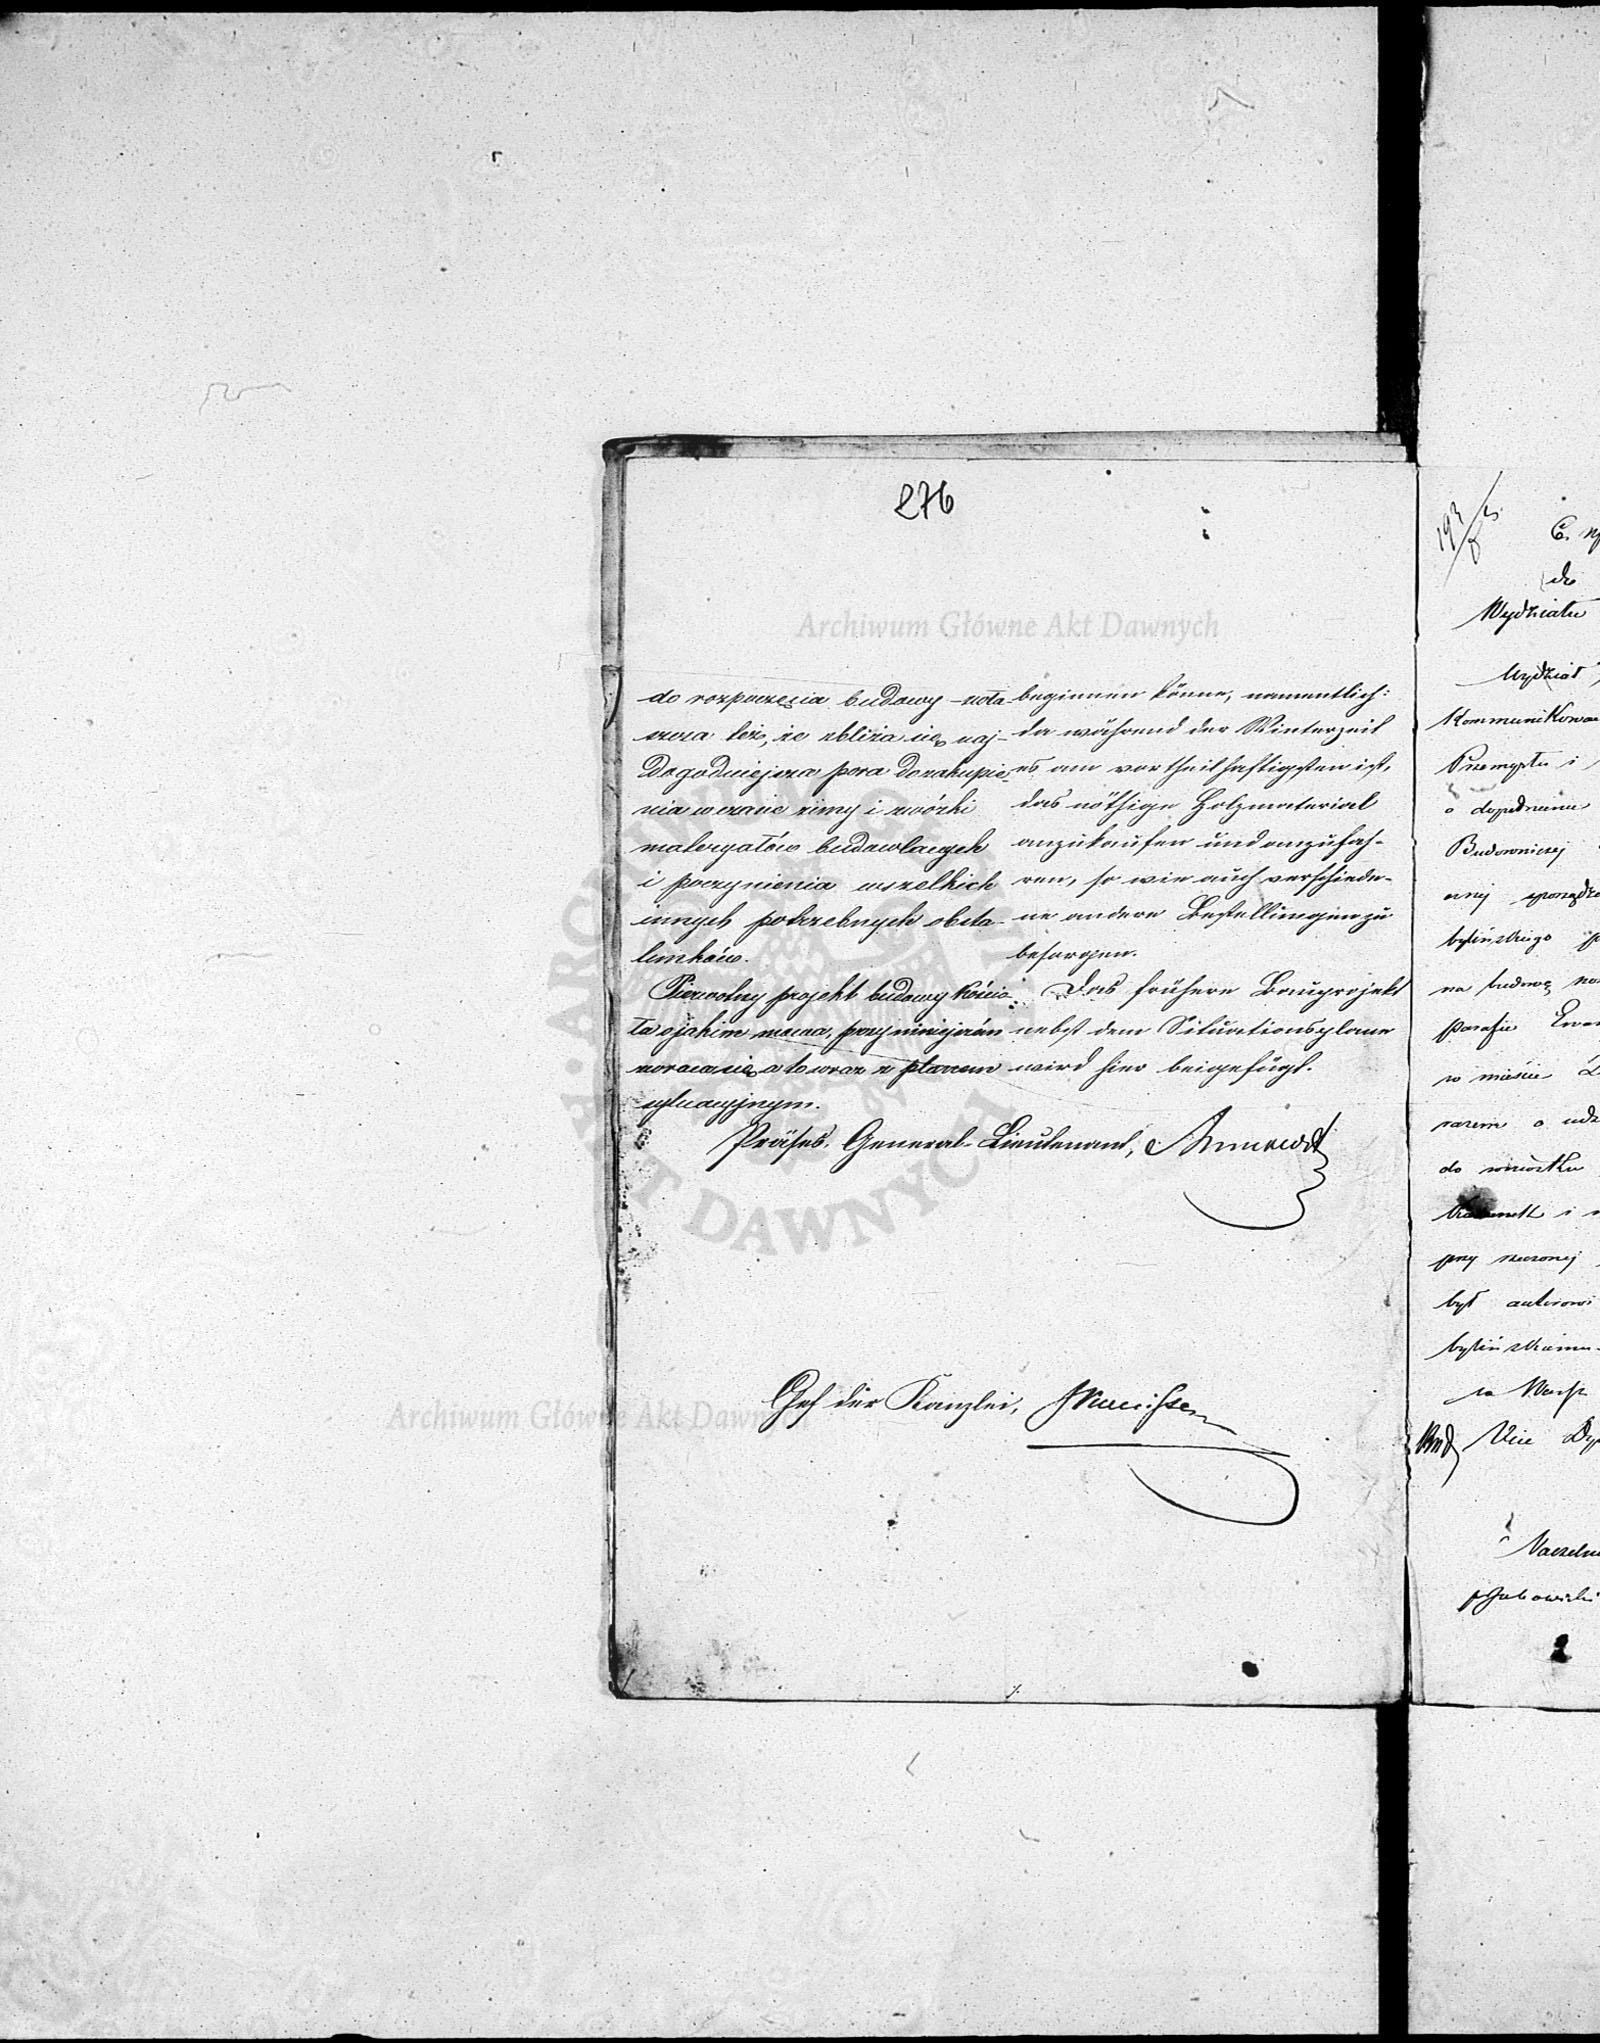 276
Archiwum Główne Akt Dawnych
do rozpoczęcia budowy
szcza też, że zbliża się naj-
dogodniejsza pora do zakupie-
nia w czasie zimy i zwózki
materyałów budowlanych
i poczynienia wszelkich
innych potrzebnych obsta-
lunków.
Pierwotny projekt budowy kościo-
ła o jakim mowa, przy niniejszém
zwraca się a to wraz z planem
sytuacyjnym.
beginnen könne, namentlich:
da während der Winterzeit
es am vortheilhaftigsten ist,
das nöthige Holzmaterial
anzukaufen und anzufah-
ren, so wie auch verschiede-
ne andere Bestellungen zu
besorgen.
Das frühere Bauprojekt
nebst dem Situationsplane
wird hier beigefügt.
Präses, General-Lieutenant,
Chef der Kanzlei,
Archiwum Główne Akt Dawnych
ARCHIWUM
AKT DAWNYCH
Wydziału
Wydział
Kommunikowa
Przemysłu i
o dopełnieniu
Budowniczej
bylińskiego p
na budowę no
parafii Ewan
w mieście
razem o udz
do wniosku
i
przy rzeczonej
był autorowi
bylińskiemu
za Wice
Vice Dy
Naczeln